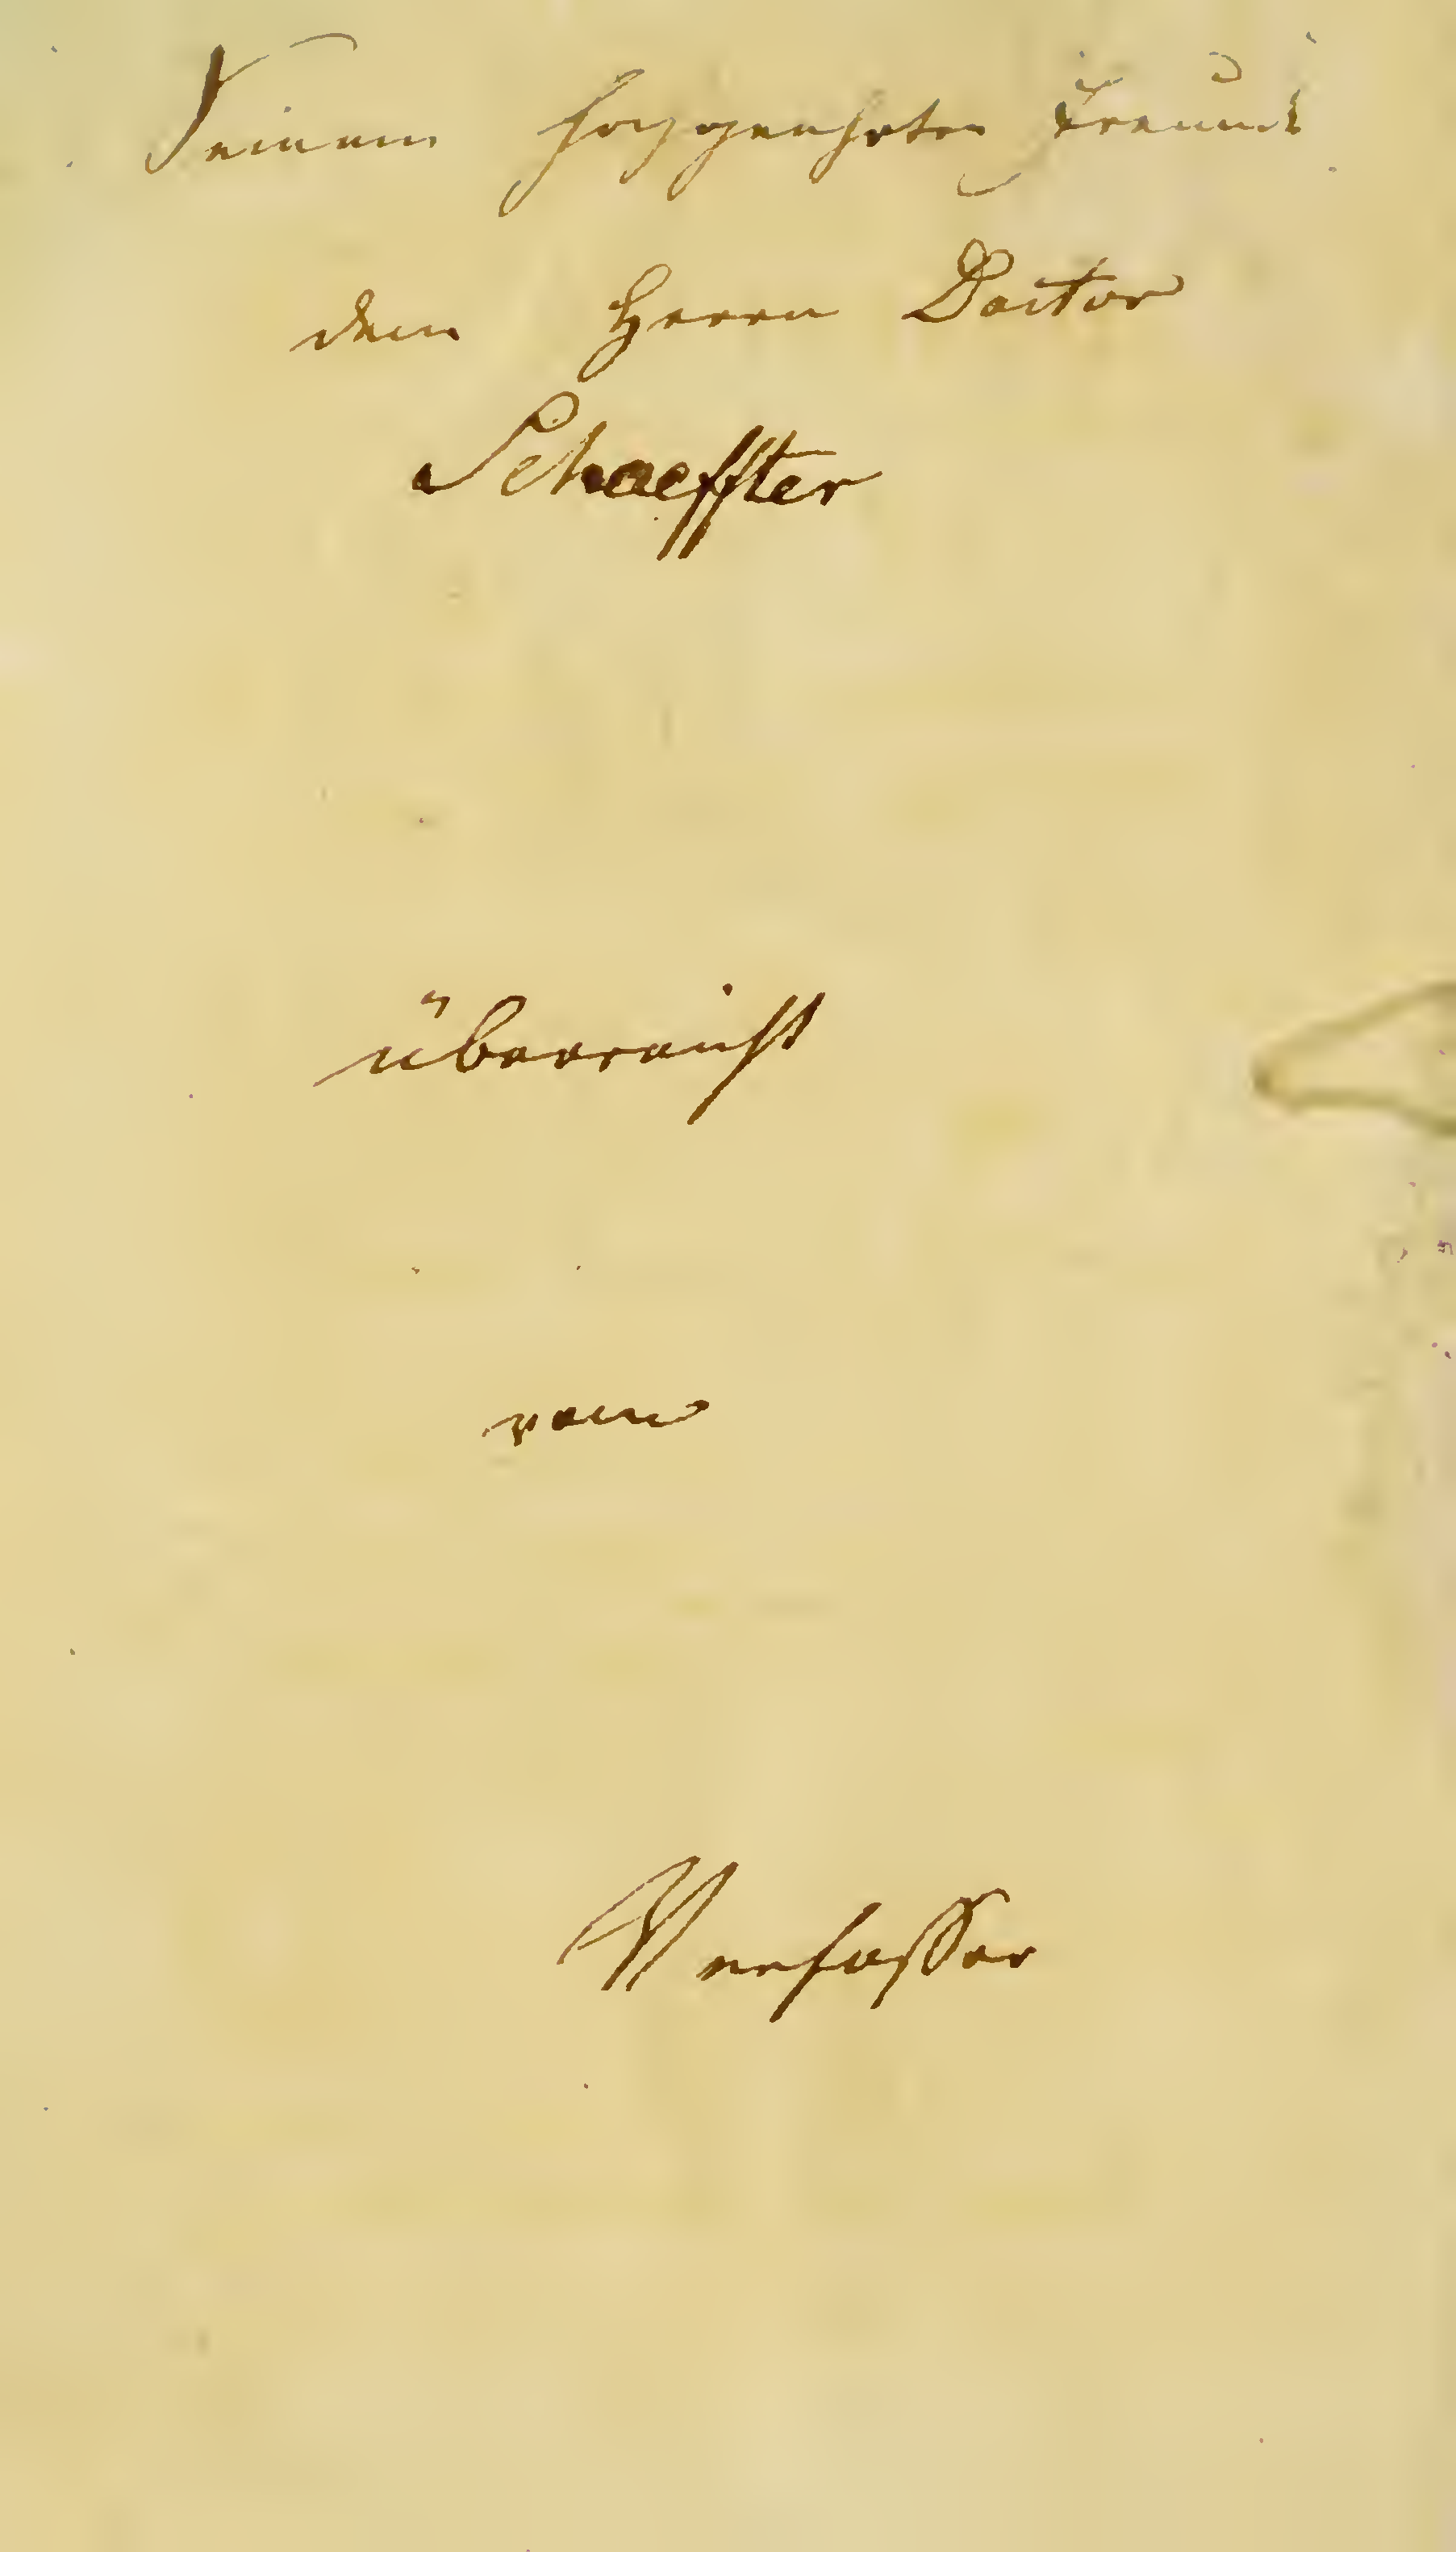 Seinem hochgeehrten Freund
dem Herrn Doctor
Schaeffter
überreicht
vom
Verfasser